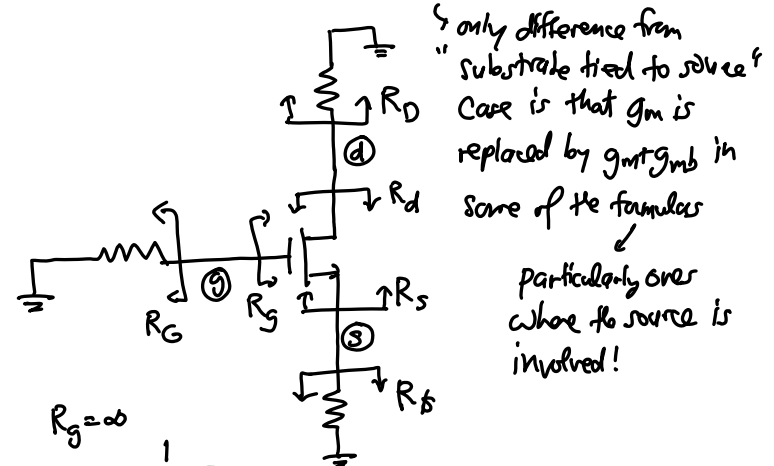 ↳ only difference from
"substrate tied to source"
case is that gm is
replaced by gm+gmb in
some of the formulas
particularly ones
where the source is
involved!
R_D
ⓓ
R_d
R_G
ⓖ
R_g
R_s
ⓢ
R_g = ∞
1